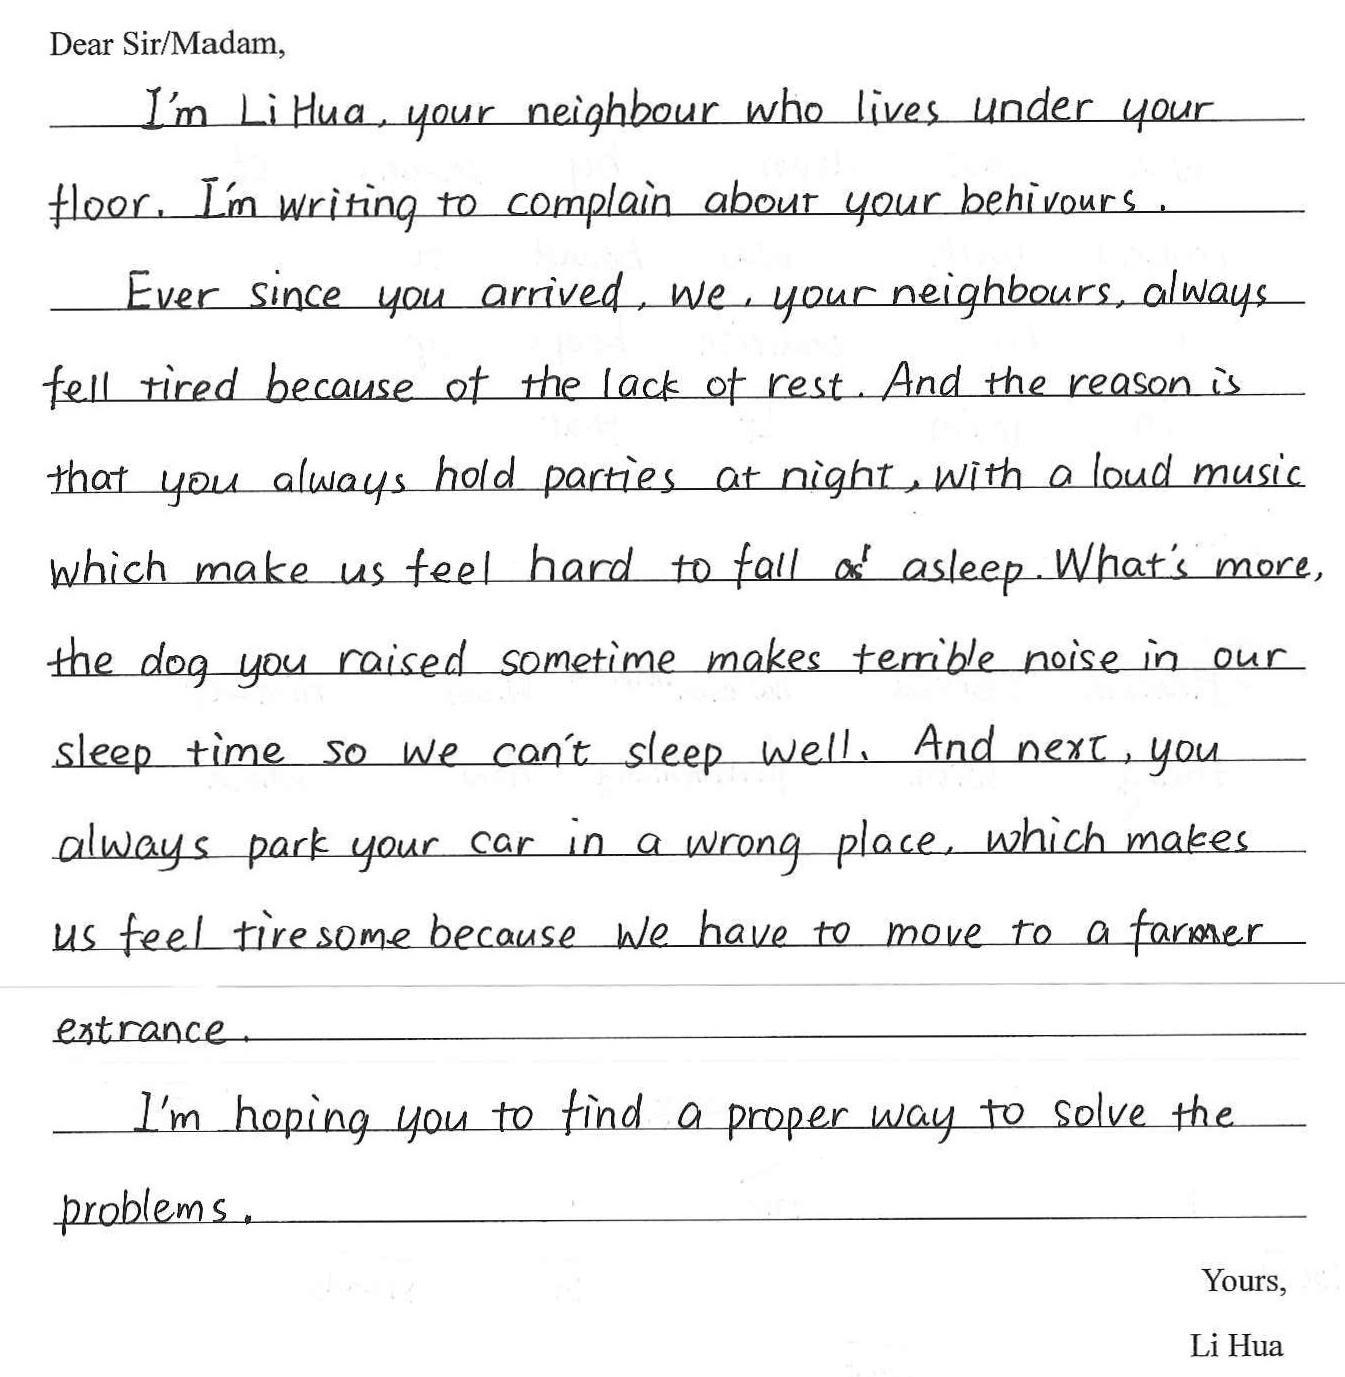 Dear Sir/Madam,
I'm Li Hua, your neighbour who lives under your
floor. I'm writing to complain about your behivours.
Ever since you arrived, we, your neighbours, always
fell tired because of the lack of rest. And the reason is
that you always hold parties at night, with a loud music
which make us feel hard to fall asleep. What's more,
the dog you raised sometime makes terrible noise in our
sleep time so we can't sleep well. And next, you
always park your car in a wrong place, which makes
us feel tiresome because we have to move to a farmer
extrance.
I'm hoping you to find a proper way to solve the
problems.
Yours,
Li Hua